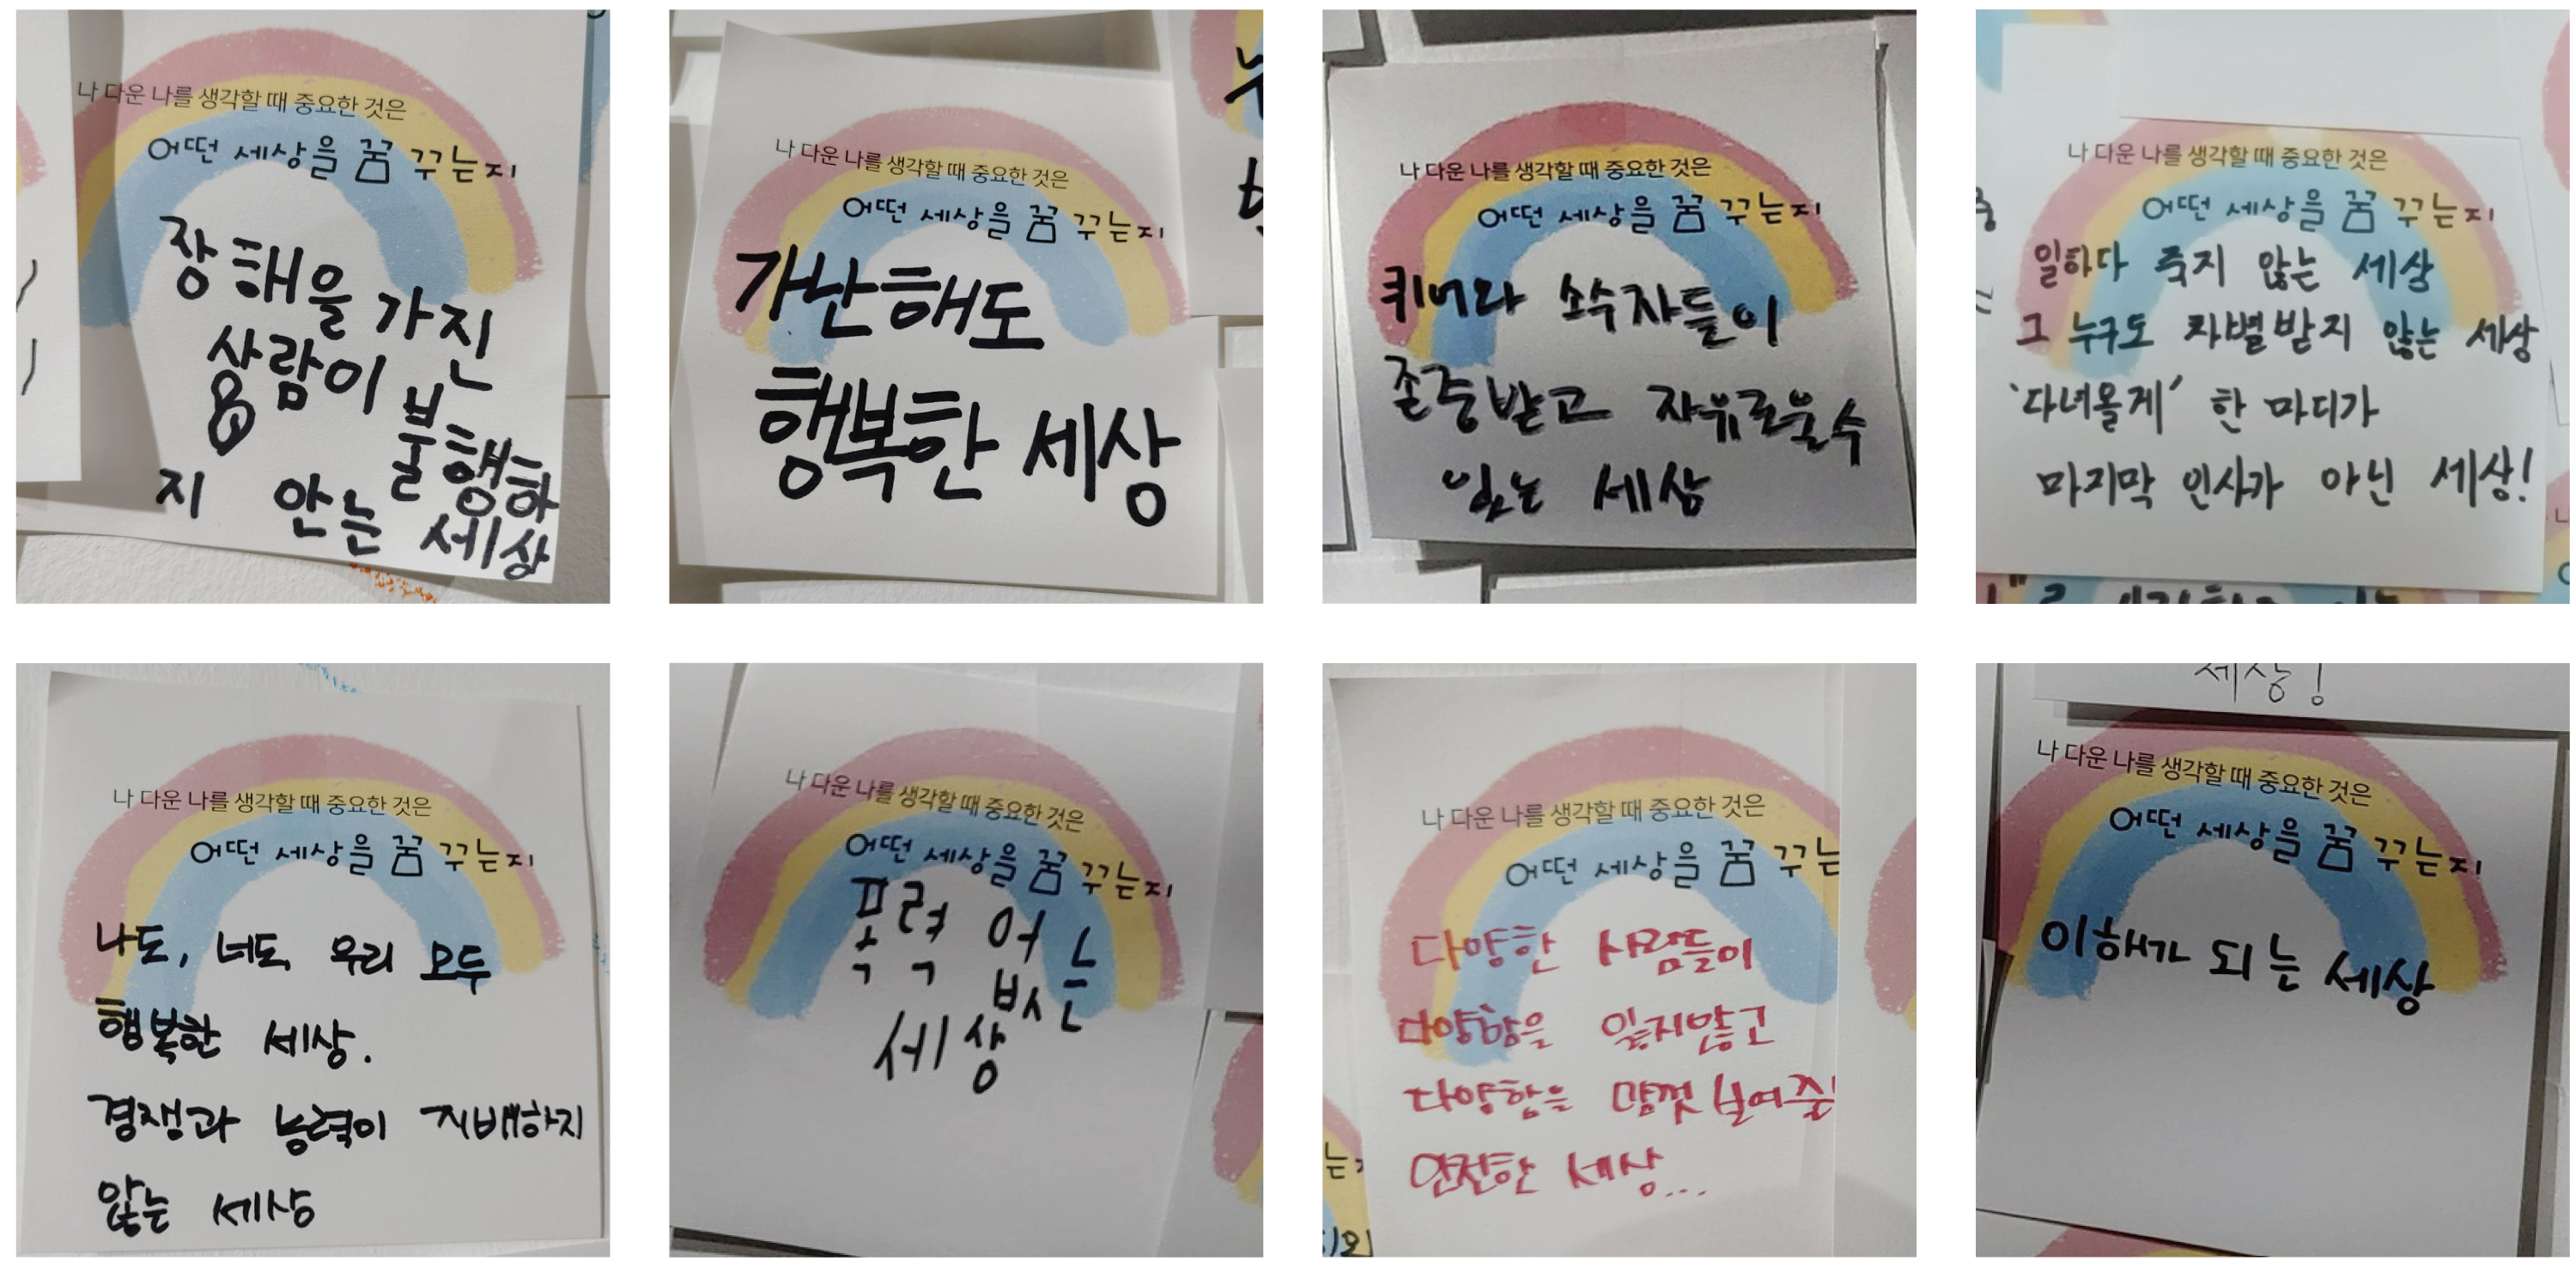 나 다운 나를 생각할 때 중요한 것은
어떤 세상을 꿈 꾸는지
장해을 가진
사람이 불행하
지 안는 세상
나 다운 나를 생각할 때 중요한 것은
어떤 세상을 꿈 꾸는지
가난해도
행복한 세상
나 다운 나를 생각할 때 중요한 것은
어떤 세상을 꿈 꾸는지
퀴어와 소수자들이
존중받고 자유로울수
있는 세상
나 다운 나를 생각할 때 중요한 것은
어떤 세상을 꿈 꾸는지
일하다 죽지 않는 세상
그 누구도 차별받지 않는 세상
'다녀올게' 한 마디가
마지막 인사가 아닌 세상!
나 다운 나를 생각할 때 중요한 것은
어떤 세상을 꿈 꾸는지
나도, 너도, 우리 모두
행복한 세상.
경쟁과 능력이 지배하지
않는 세상
나 다운 나를 생각할 때 중요한 것은
어떤 세상을 꿈 꾸는지
폭력 없는
세상
나 다운 나를 생각할 때 중요한 것은
어떤 세상을 꿈 꾸는
다양한 사람들이
다양함을 잃지않고
다양함을 맘껏 보여줄
안전한 세상...
세상!
나 다운 나를 생각할 때 중요한 것은
어떤 세상을 꿈 꾸는지
이해가 되는 세상